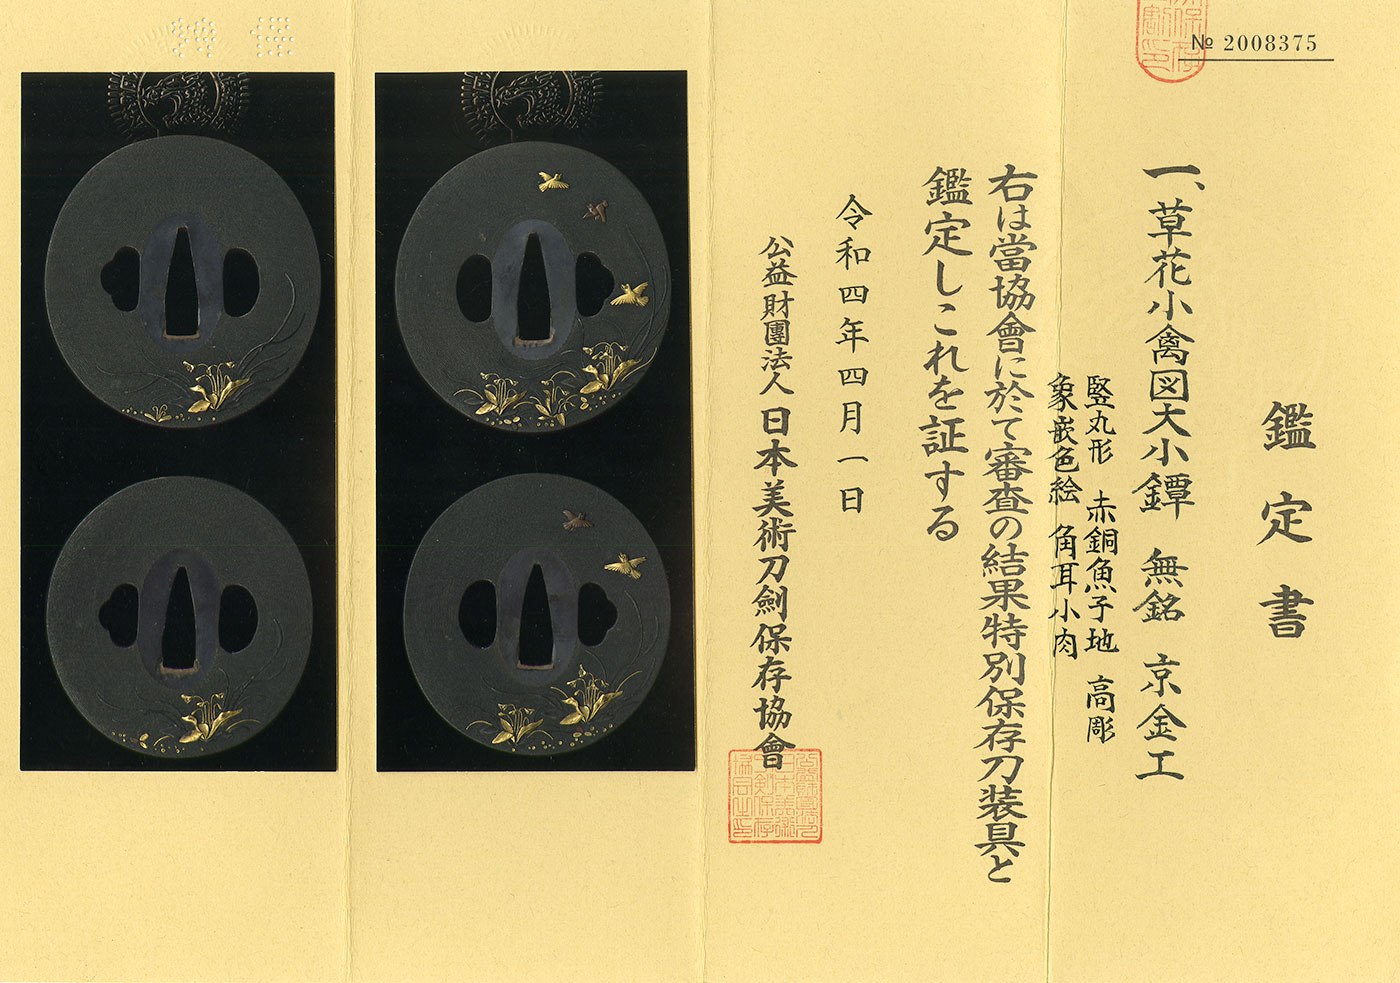 № 2008375
鑑定書
一、草花小禽図大小鐔 無銘 京金工
竪丸形 赤銅魚子地 高彫
象嵌色絵 角耳小肉
右は當協會に於て審査の結果特別保存刀装具と
鑑定しこれを証する
令和四年四月一日
公益財團法人 日本美術刀劍保存協會